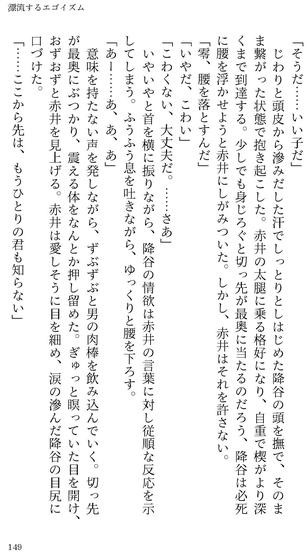 漂流するエゴイズム
「そうだ……いい子だ」
じわりと頭皮から滲みだした汗でしっとりとしはじめた降谷の頭を撫で、そのま
ま繋がった状態で抱き起こした。赤井の太腿に乗る格好になり、自重で楔がより深
くまで到達する。少しでも身じろぐと切っ先が最奥に当たるのだろう、降谷は必死
に腰を浮かせようと赤井にしがみついた。しかし、赤井はそれを許さない。
「零、腰を落とすんだ」
「いやだ、こわい」
「こわくない、大丈夫だ。……さあ」
いやいやと首を横に振りながら、降谷の情欲は赤井の言葉に対し従順な反応を示
してしまう。ふうふう息を吐きながら、ゆっくりと腰を下ろす。
「あ――……あ、あ、あ」
意味を持たない声を発しながら、ずぶずぶと男の肉棒を飲み込んでいく。切っ先
が最奥にぶつかり、震える体をなんとか押し留めた。ぎゅっと瞑っていた目を開け、
おずおずと赤井を見上げる。赤井は愛しそうに目を細め、涙の滲んだ降谷の目尻に
口づけた。
「……ここから先は、もうひとりの君も知らない」
149